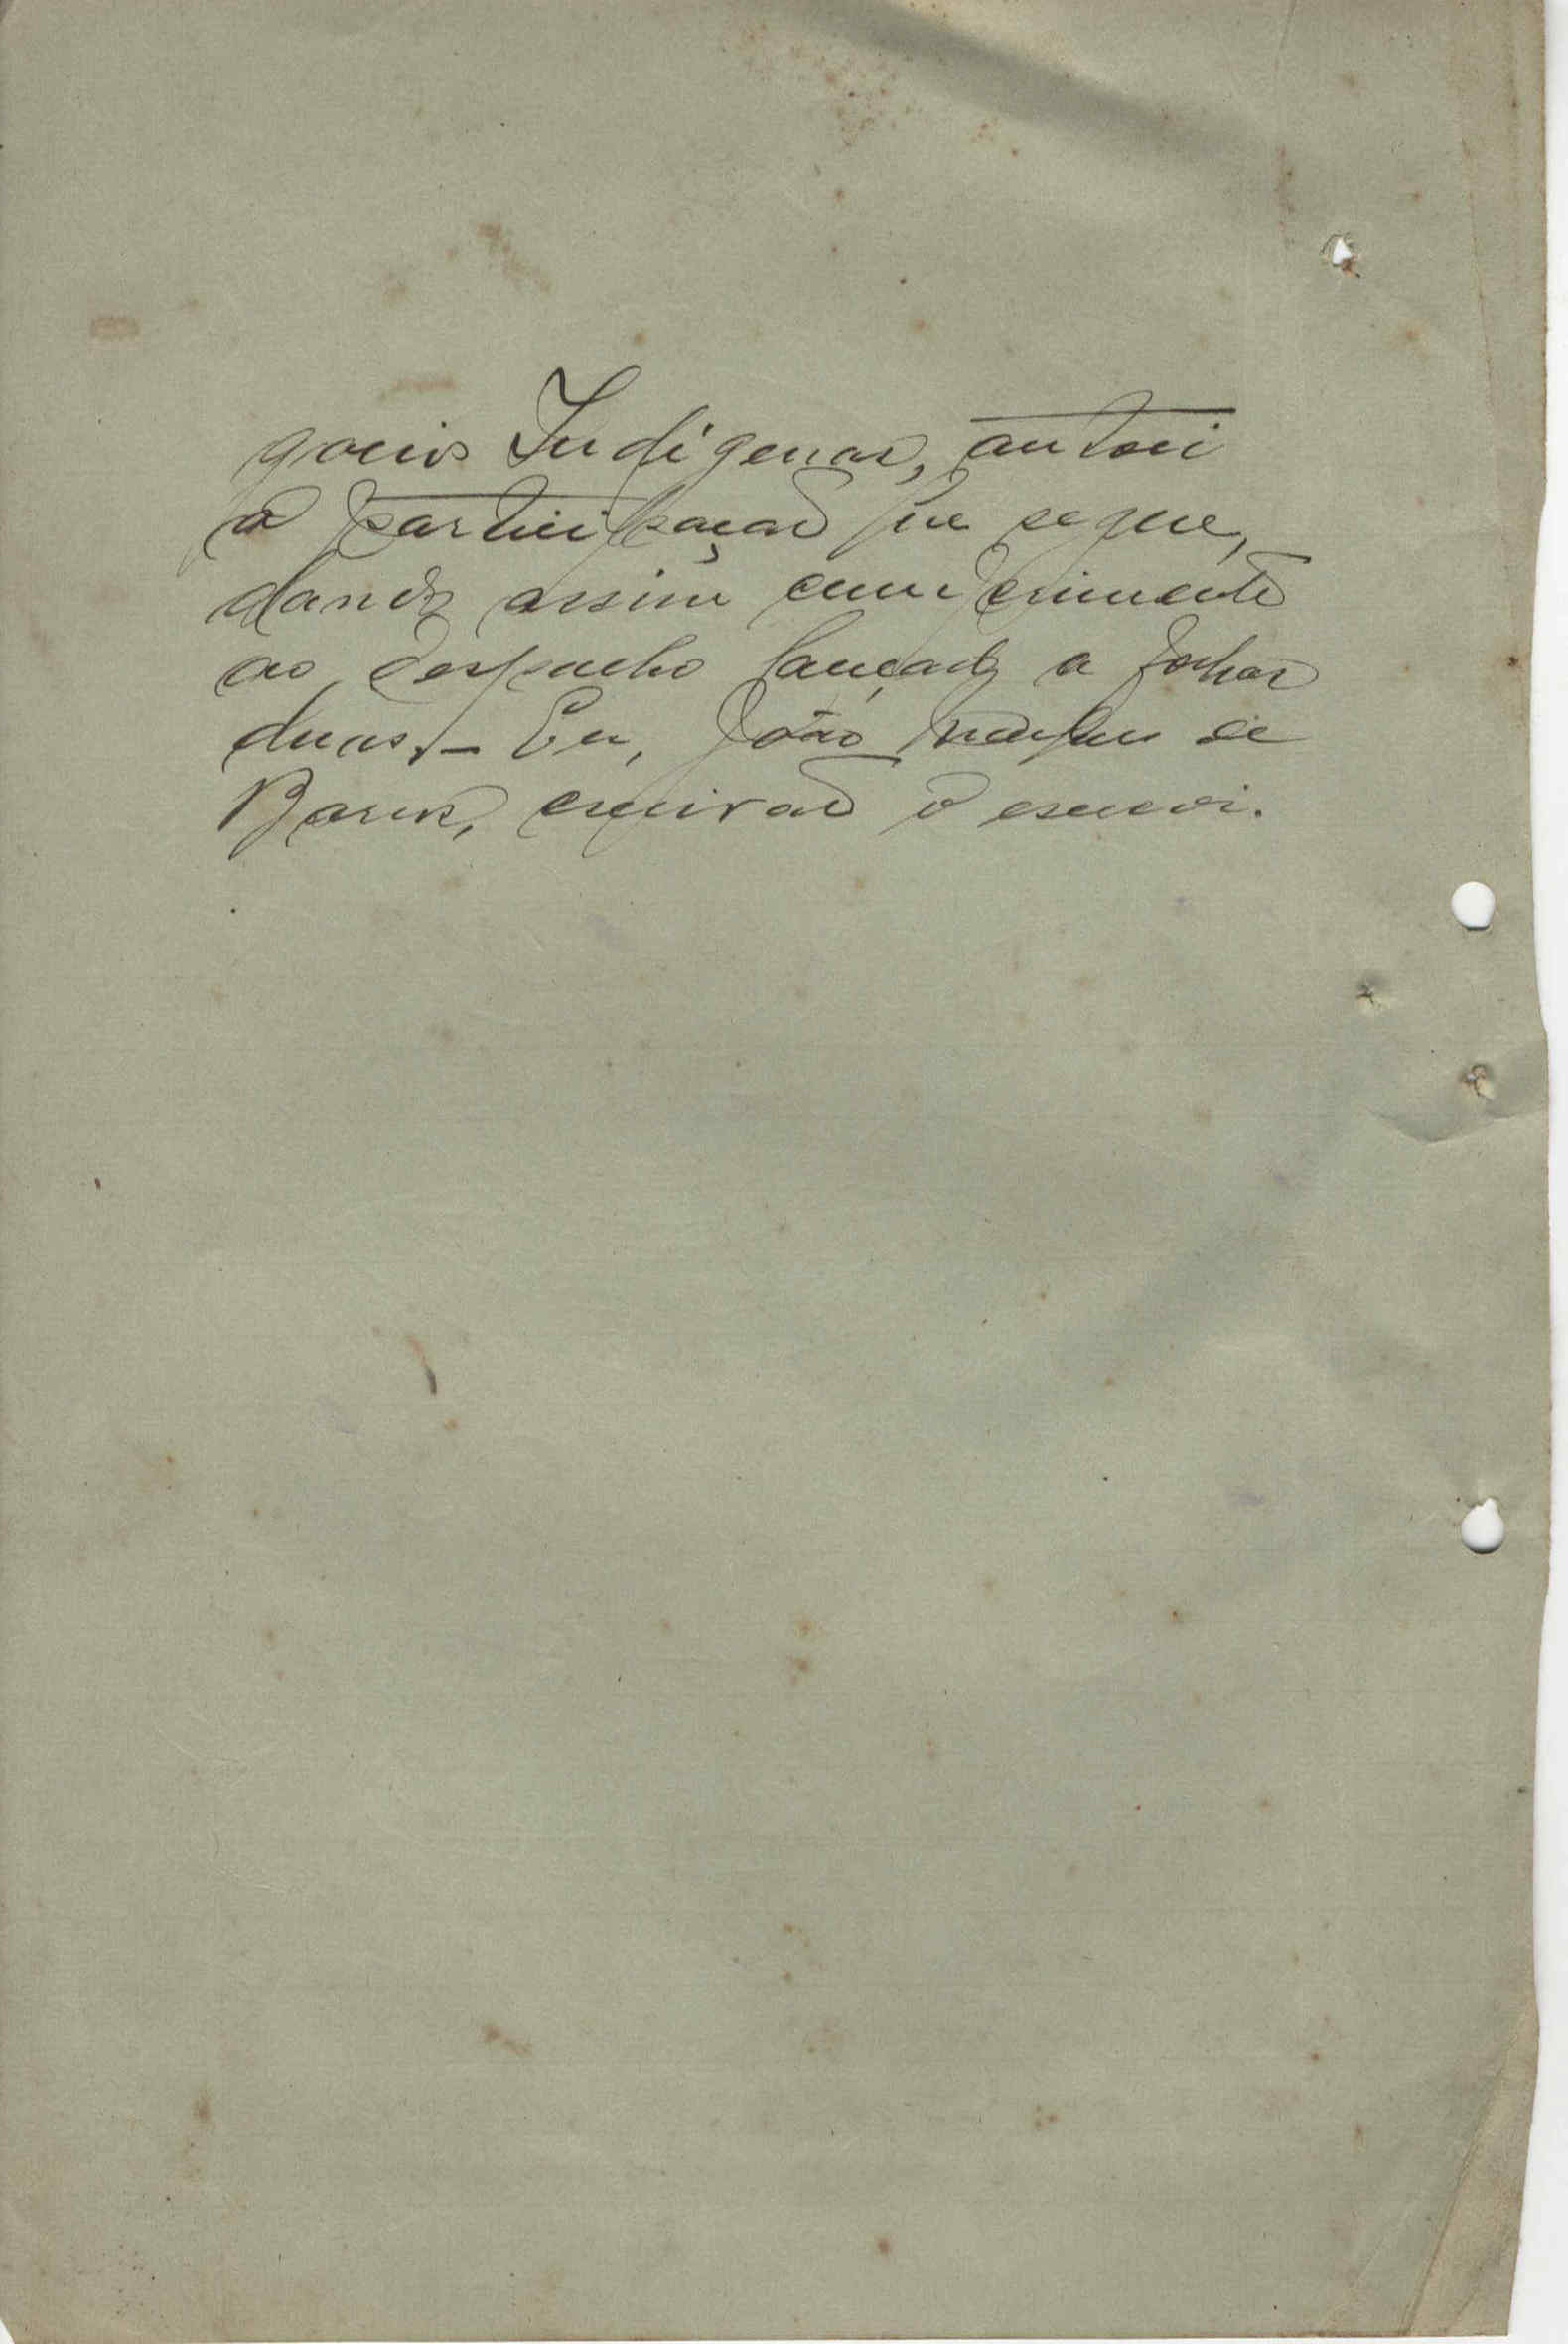 gocios Indigenas, autuei
a participação que segue,
dando assim cumprimento
ao despacho lançado a folhas
duas.- Eu, João de
Barros, escrivão o escrevi.